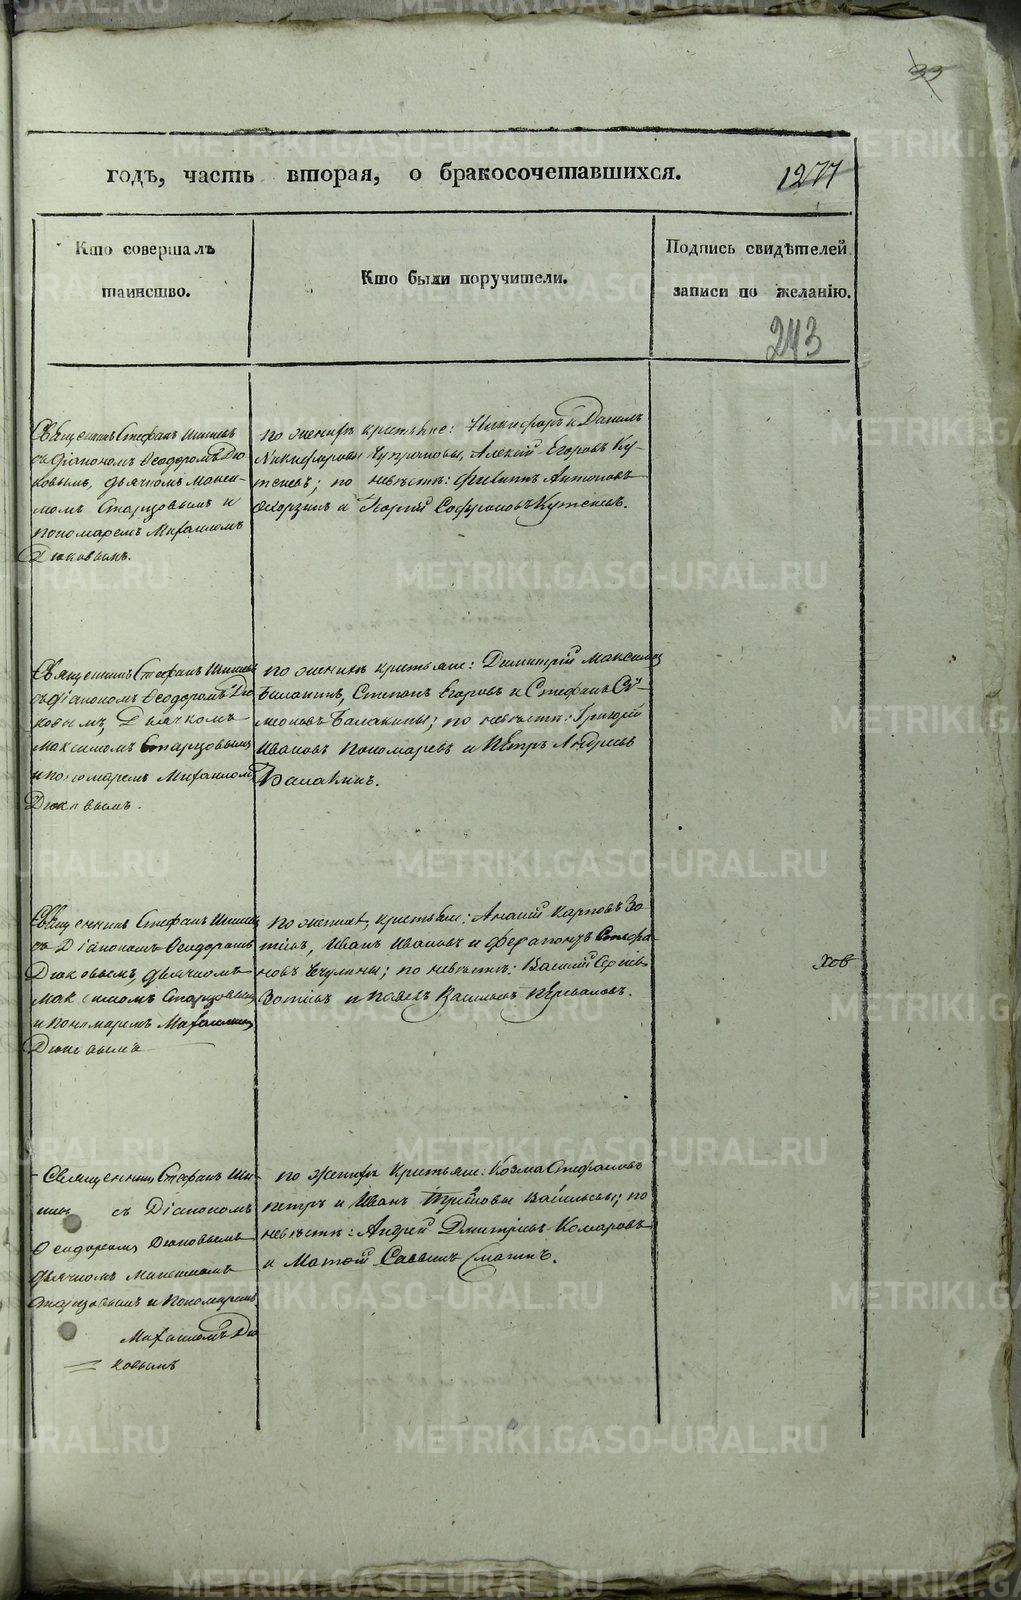 33
годъ, часть вторая, о бракосочетавшихся.
1277
Кто совершалъ
таинство.
Кто были поручители.
Подпись свидѣтелей
записи по желанію.
243
Священникъ Стефанъ Шишевъ
съ Діакономъ Ѳеодоромъ Дю
ковымъ, дьячкомъ Макси-
момъ Старцовымъ и
пономаремъ Михаиломъ
Дюковымъ.
по женихѣ крестьяне: Никифоръ и Данилъ
Никифоровы Чупраковы, Алексій Егоровъ Ку-
теневъ; по невѣстѣ: Филиппъ Антоновъ
и Георгій Софроновъ Кутеневъ.
Священникъ Стефанъ Шишевъ
съ Діакономъ Ѳеодоромъ Дю
ковымъ, Дьячкомъ
Максимомъ Старцовымъ
и пономаремъ Михаиломъ
Дюковымъ.
по женихѣ крестьяне: Димитрій Максимов
Балакинъ, Степанъ Егоровъ и Стефанъ Си-
меоновъ Балакины; по невѣстѣ: Григорій
Ивановъ Пономаревъ и Петръ Андреевъ
Балакинъ.
Священникъ Стефанъ Шишев
съ Діакономъ Ѳеодоромъ
Дюковымъ, дьячкомъ
Максимомъ Старцовым
и пономаремъ Михаилом
Дюковымъ
по женихѣ, крестьяне: Ананій Карповъ Зо-
тѣевъ, Иванъ Ивановъ и Ферапонтъ Стефа-
новъ Чечулины; по невѣстѣ: Василій Сергѣевъ
Зотѣевъ и Павелъ Васильевъ Переваловъ.
хов
Священник Стефанъ Ши-
шевъ съ Діакономъ
Ѳеодоромъ Дюковымъ
дьячкомъ Максимомъ
Старцовымъ и Пономаремъ
Михаиломъ Дю
ковымъ
по женихѣ Крестьяне: Козма Стефановъ
Петръ и Иванъ Васильевы; по
невѣстѣ: Андрей Дмитріевъ Комаровъ
и Матѳій Саввинъ
METRIKI.GASO-URAL.RU